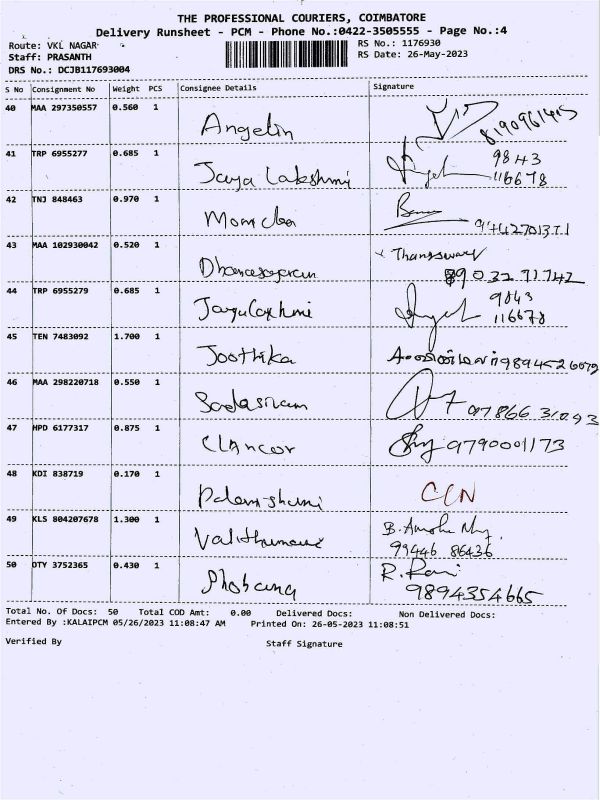 THE PROFESSIONAL COURIERS, COIMBATORE
Delivery Runsheet - PCM - Phone No.:0422-3505555 - Page No.:4
Route: VKL NAGAR
RS No.: 1176930
Staff: PRASANTH
RS Date: 26-May-2023
DRS No.: DCJB117693004
S No Consignment No Weight PCS Consignee Details Signature
40 MAA 297350557 0.560 1 Angelin
41 TRP 6955277 0.685 1 Jaya Lakshmi 9843
116678
42 TNJ 848463 0.970 1
43 MAA 102930042 0.520 1
8903291742
44 TRP 6955279 0.685 1 Jayalaxhmi 9843
116678
45 TEN 7483092 1.700 1 Joothika
46 MAA 298220718 0.550 1 Sadasivam
47 HPD 6177317 0.875 1 9790001173
48 KDI 838719 0.170 1 CCN
49 KLS 804207678 1.300 1
99446 86436
50 OTY 3752365 0.430 1 R. Rani
9894354665
Total No. Of Docs: 50 Total COD Amt: 0.00 Delivered Docs: Non Delivered Docs:
Entered By :KALAIPCM 05/26/2023 11:08:47 AM Printed On: 26-05-2023 11:08:51
Verified By Staff Signature